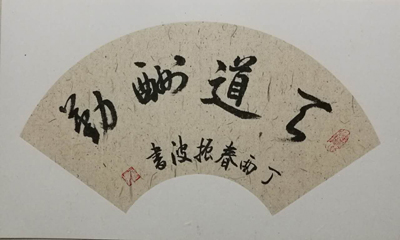 天道酬勤
丁酉春振波书